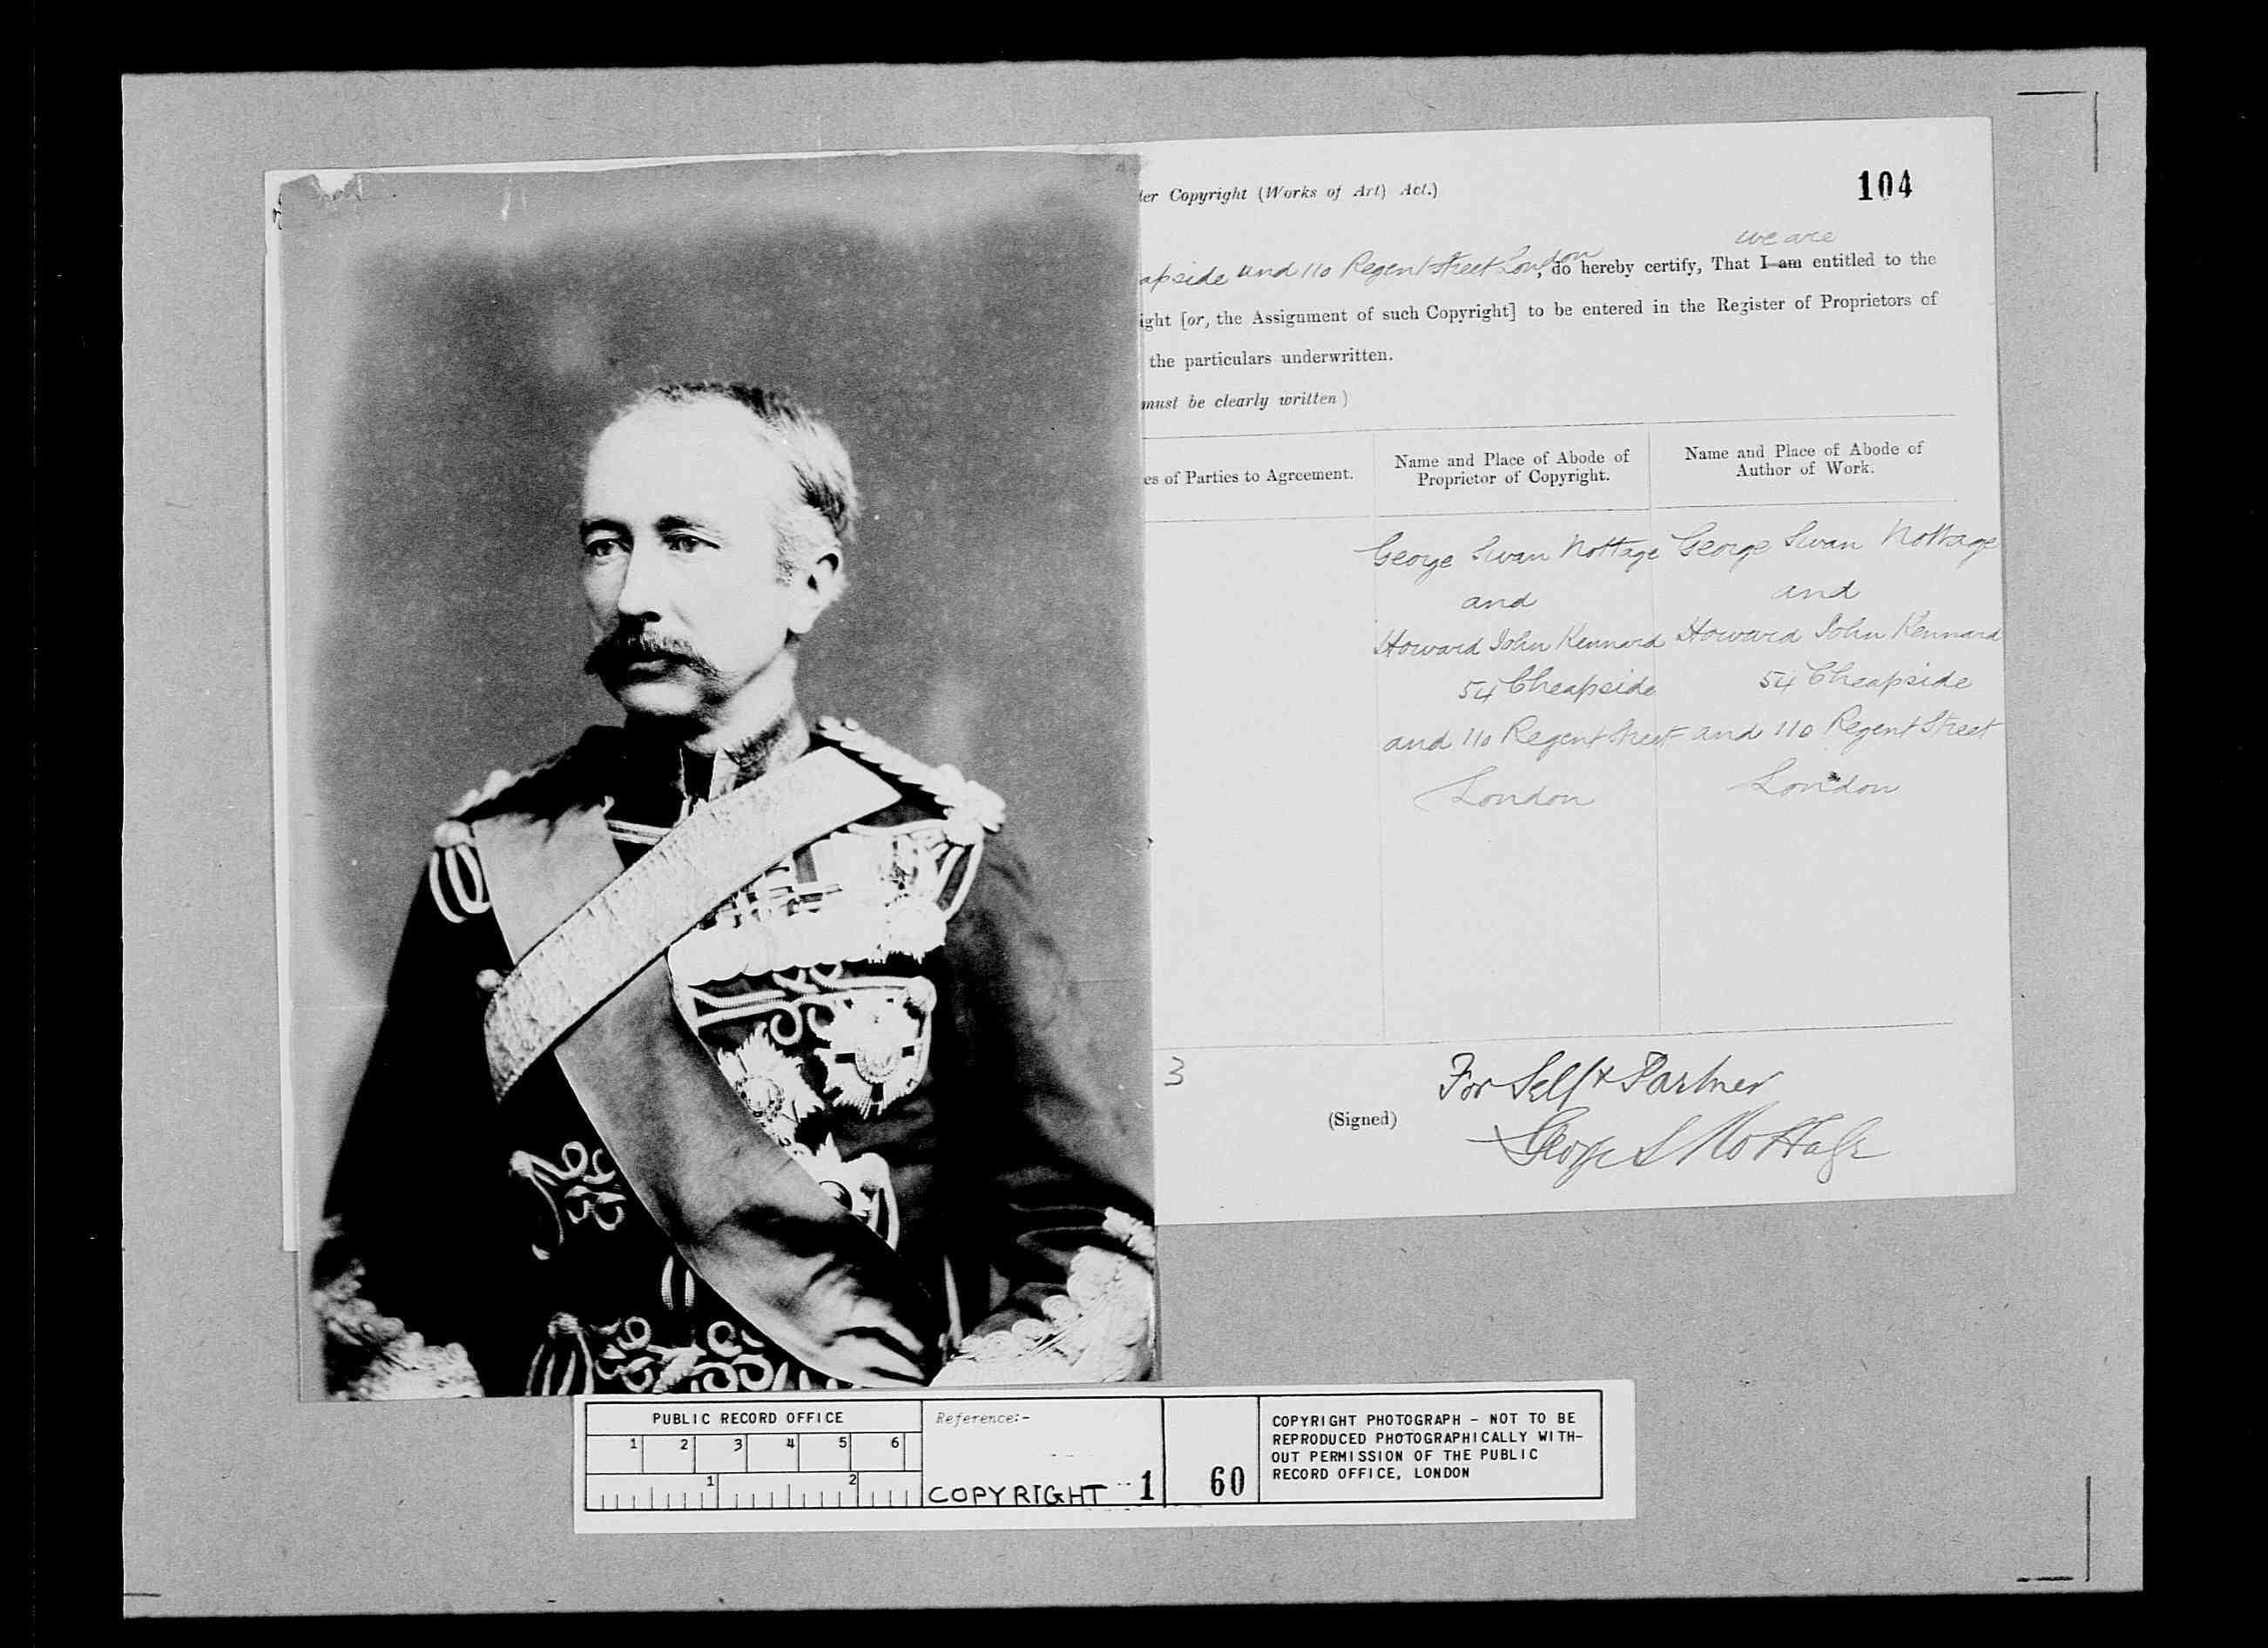 der Copyright (Works of Art) Act.)
104
we are
apside and 110 Regent Street London, do hereby certify, That I am entitled to the
ight [or, the Assignment of such Copyright] to be entered in the Register of Proprietors of
the particulars underwritten.
must be clearly written)
es of Parties to Agreement.
Name and Place of Abode of
Proprietor of Copyright.
Name and Place of Abode of
Author of Work.
George Swan Nottage
and
Howard John Kennard
54 Cheapside
and 110 Regent Street
London
George Swan Nottage
and
Howard John Kennard
54 Cheapside
and 110 Regent Street
London
3
For Self & Partner
(Signed)
George S Nottage
PUBLIC RECORD OFFICE
1 2 3 4 5 6
1 2
Reference:-
COPYRIGHT 1
60
COPYRIGHT PHOTOGRAPH - NOT TO BE
REPRODUCED PHOTOGRAPHICALLY WITH-
OUT PERMISSION OF THE PUBLIC
RECORD OFFICE, LONDON